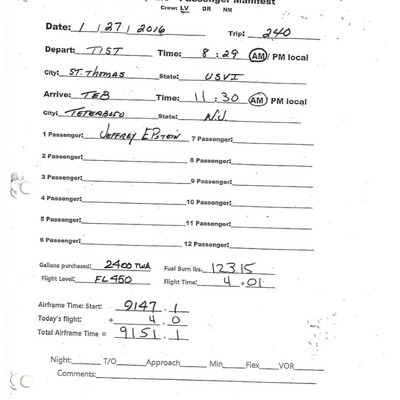 Passenger Manifest
Crew: LV DR NM
Date: 1 / 27 / 2016 Trip: 240
Depart: TIST Time: 8:29 AM / PM local
City: ST. THOMAS State: USVI
Arrive: TEB Time: 11:30 AM / PM local
City: TETERBORO State: N.J.
1 Passenger: JEFFREY EPSTEIN 7 Passenger:
2 Passenger: 8 Passenger:
3 Passenger: 9 Passenger:
4 Passenger: 10 Passenger:
5 Passenger: 11 Passenger:
6 Passenger: 12 Passenger:
Gallons purchased: 2400 TWA Fuel Burn lbs. 12315
Flight Level: FL450 Flight Time: 4 + 01
Airframe Time: Start: 9147.1
Today's flight: + 4.0
Total Airframe Time = 9151.1
Night: T/O Approach Min Flex VOR
Comments: